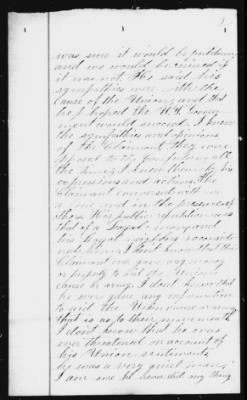 was sure it would be put down
and we would be ruined if
it was not. He said his
sympathies were with the
cause of the Union, and that
he hoped the U.S. Govern
ment would succeed. I know
the sympathies and opinions
of the Claimant they were
opposed to the
all
the time, I know them by his
expressions and actions. The
Claimant conversed with me
alone and in the presence of
others. His public reputation was
that of a Loyal man, and
his loyal neighbors
him. I dont know that the
Claimant ever gave any money
or property to aid the Union
cause or army. I dont know that
he ever gave any information
to aid the Union cause or army
that is as to their movements
I dont know that he was
ever threatened on account of
his Union sentiments,
he was a very quiet man,
I am sure he never did any thing